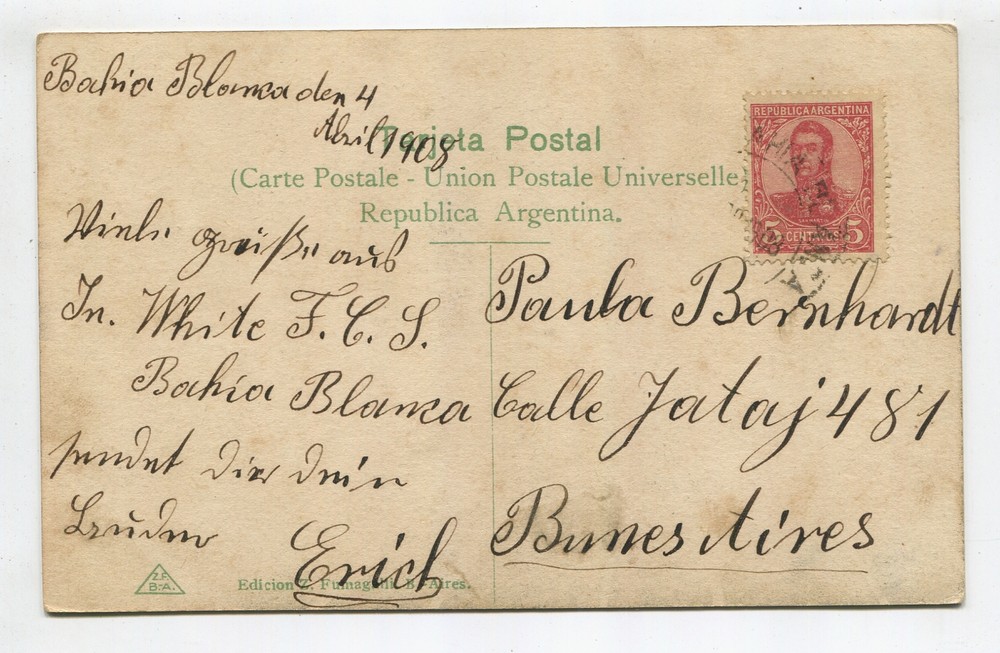 Bahia Blanca den 4
Abril 1908
Tarjeta Postal
(Carte Postale - Union Postale Universelle
Republica Argentina.
REPÚBLICA ARGENTINA
5 CENTAVOS 5
Viele grüße aus
In. White F. C. S.
Bahia Blanca
sendet dir dein
Bruder
Erich
Paula Bernhardt
Calle Jataj 481
Bunes Aires
Z.F.
B.-A.
Edicion Z. Fumagalli B. Aires.